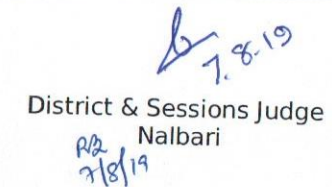 7.8.19
District & Sessions Judge
Nalbari
7/8/19